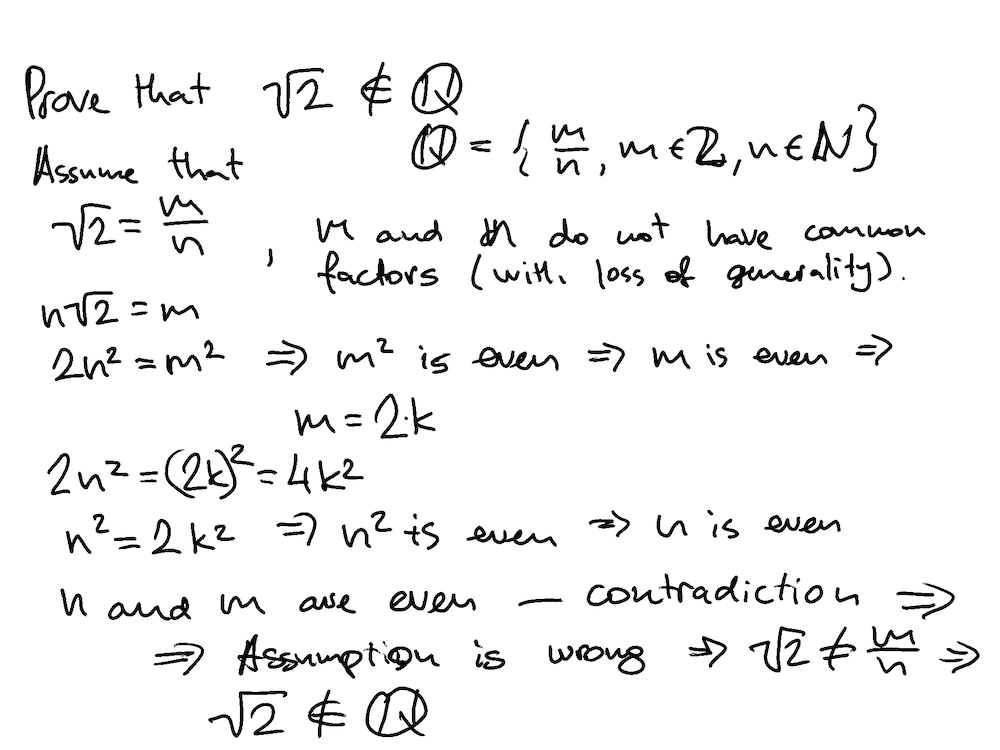 Prove that √2 ∉ ℚ
ℚ = { m/n, m ∈ ℤ, n ∈ ℕ }
Assume that
√2 = m/n , m and n do not have common
factors (with. loss of generality).
n√2 = m
2n² = m² ⇒ m² is even ⇒ m is even ⇒
m = 2·k
2n² = (2k)² = 4k²
n² = 2k² ⇒ n² is even ⇒ n is even
n and m are even — contradiction ⇒
⇒ Assumption is wrong ⇒ √2 ≠ m/n ⇒
√2 ∉ ℚ